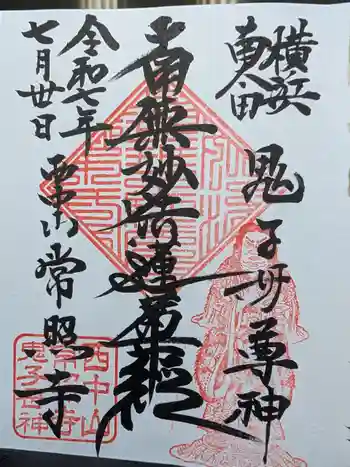 横浜
南太田
鬼子母尊神
南無妙法蓮華經
令和七年
七月丗日
常照寺
西中山
鬼子母神